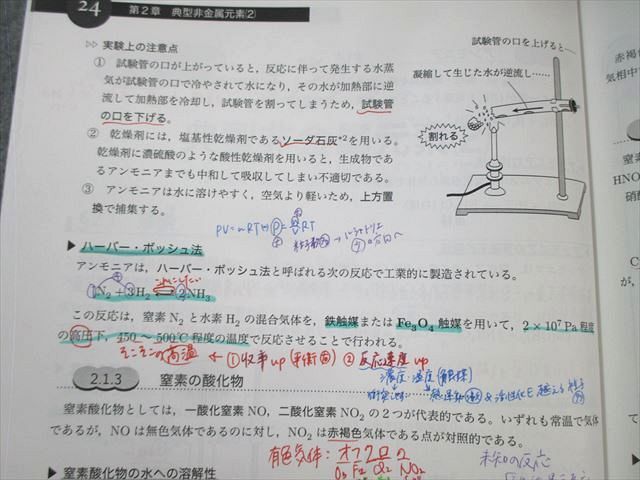 24
第2章 典型非金属元素(2)
▷▷ 実験上の注意点
① 試験管の口が上がっていると，反応に伴って発生する水蒸
気が試験管の口で冷やされて水になり，その水が加熱部に逆
流して加熱部を冷却し，試験管を割ってしまうため，試験管
の口を下げる。
② 乾燥剤には，塩基性乾燥剤であるソーダ石灰*2を用いる。
乾燥剤に濃硫酸のような酸性乾燥剤を用いると，生成物であ
るアンモニアまでも中和して吸収してしまい不適切である。
③ アンモニアは水に溶けやすく，空気より軽いため，上方置
換で捕集する。
試験管の口を上げると
凝縮して生じた水が逆流し……
割れる
PV=nRT
RT
▶ ハーバー・ボッシュ法
アンモニアは，ハーバー・ボッシュ法と呼ばれる次の反応で工業的に製造されている。
①N₂ + 3H₂ ⇄ 2NH₃
この反応は，窒素 N₂ と水素 H₂ の混合気体を，鉄触媒または Fe₃O₄ 触媒を用いて，2×10⁷Pa 程度
の高圧下，450〜500℃程度の温度で反応させることで行われる。
そこそこの高温 ← ①収率up(平衡 ②反応速度 up
濃度 温度(触媒)
活性化E
2.1.3 窒素の酸化物
窒素酸化物としては，一酸化窒素 NO，二酸化窒素 NO₂ の2つが代表的である。いずれも常温で気体
であるが，NO は無色気体であるのに対し，NO₂ は赤褐色気体である点が対照的である。
有色気体:
O₃ F₂ Cl₂ NO₂
未知の反応
▶ 窒素酸化物の水への溶解性
赤褐
気相中
HNO
硝酸